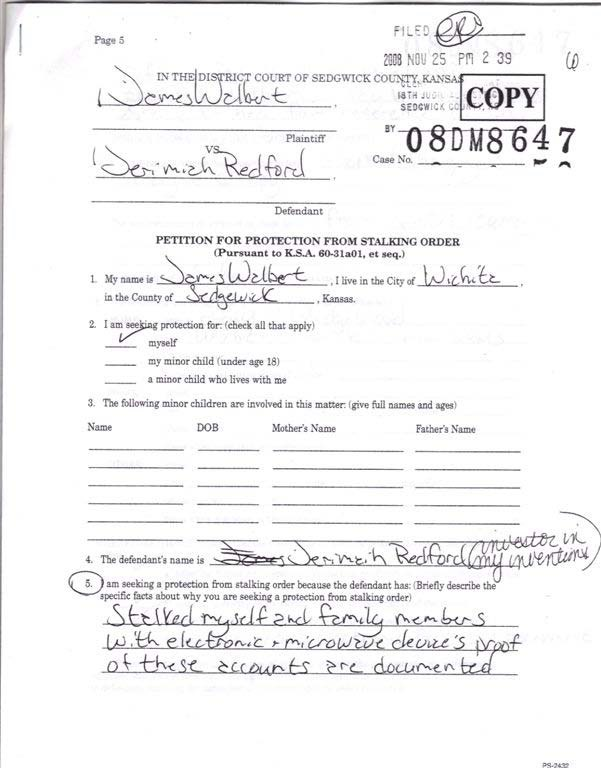 Page 5
FILED
2008 NOV 25 PM 2 39
IN THE DISTRICT COURT OF SEDGWICK COUNTY, KANSAS
18TH
SEDGWICK
COPY
James Walbert
Plaintiff
VS
BY
08DM8647
Case No.
Jerimiah Redford
Defendant
PETITION FOR PROTECTION FROM STALKING ORDER
(Pursuant to K.S.A. 60-31a01, et seq.)
1. My name is James Walbert, I live in the City of Wichita,
in the County of Sedgewick, Kansas.
2. I am seeking protection for: (check all that apply)
✓ myself
my minor child (under age 18)
a minor child who lives with me
3. The following minor children are involved in this matter: (give full names and ages)
Name DOB Mother's Name Father's Name
4. The defendant's name is James Jerimaih Redford (investor in
my inventions)
5. I am seeking a protection from stalking order because the defendant has: (Briefly describe the
specific facts about why you are seeking a protection from stalking order)
Stalked myself and family members
with electronic + microwave device's proof
of these accounts are documented
PS-2432